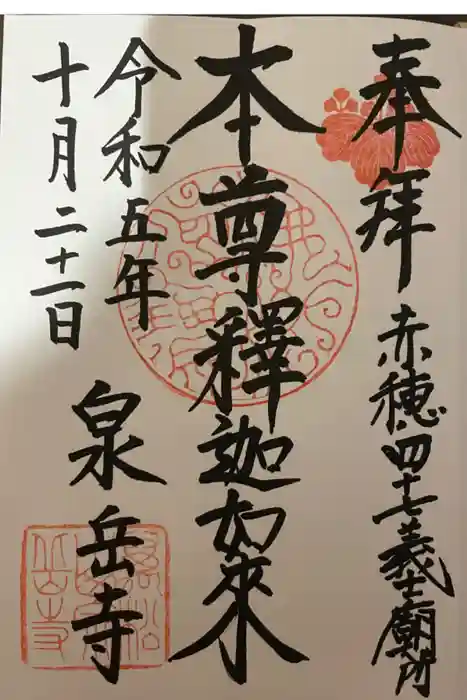 奉拜
赤穂四十七義士廟所
本尊釋迦如來
令和五年
十月二十一日
泉岳寺